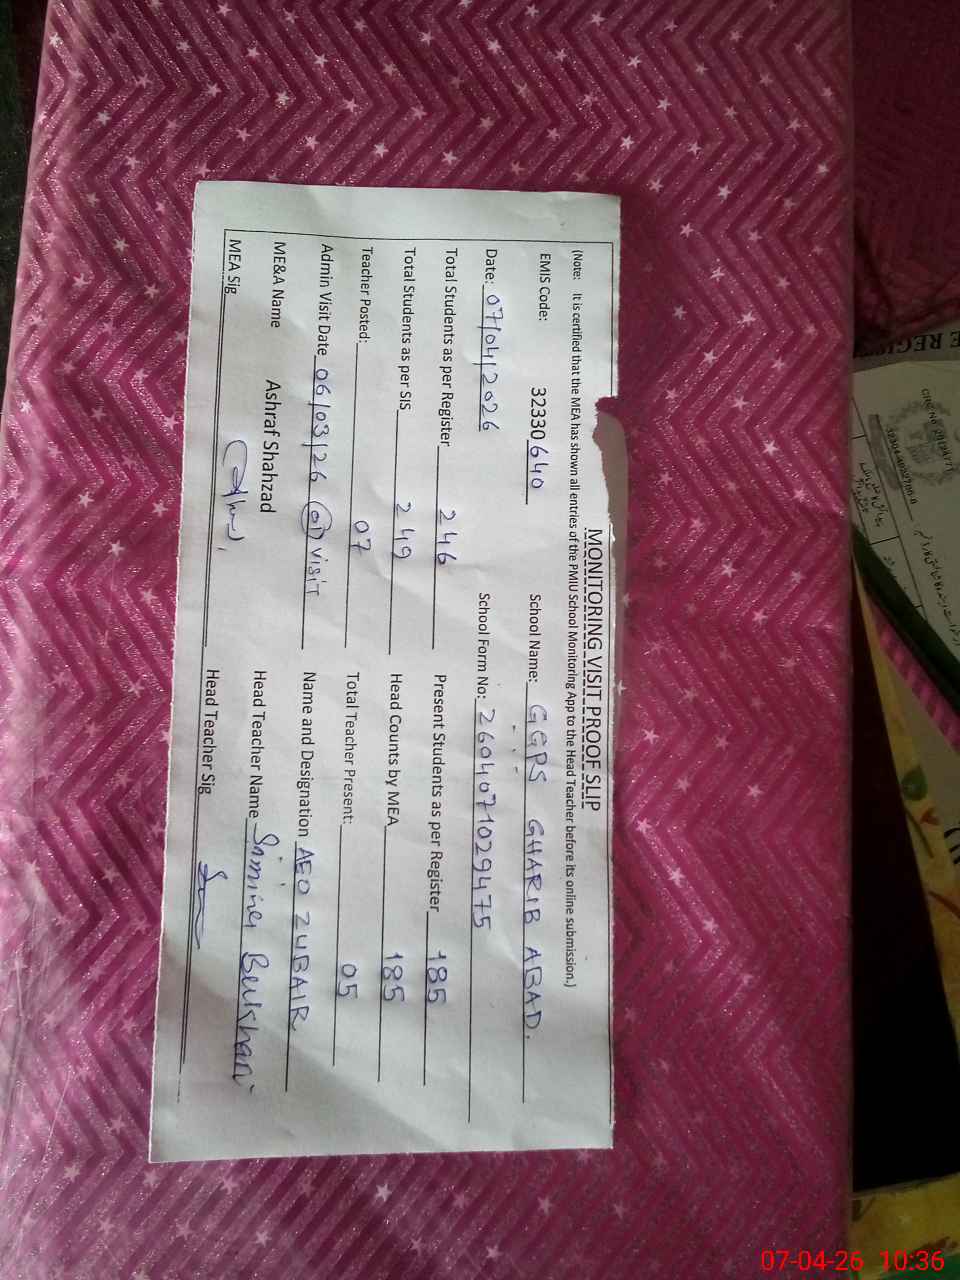 MONITORING VISIT PROOF SLIP
(Note: It is certified that the MEA has shown all entries of the PMIU School Monitoring App to the Head Teacher before its online submission.)
EMIS Code: 32330640 School Name: GGPS GHARIB ABAD.
Date: 07/04/2026 School Form No: 2604071029475
Total Students as per Register 246 Present Students as per Register 185
Total Students as per SIS 249 Head Counts by MEA 185
Teacher Posted: 07 Total Teacher Present: 05
Admin Visit Date 06/03/26 01 visit Name and Designation AEO ZUBAIR
ME&A Name Ashraf Shahzad Head Teacher Name Samina
MEA Sig Head Teacher Sig
07-04-26 10:36